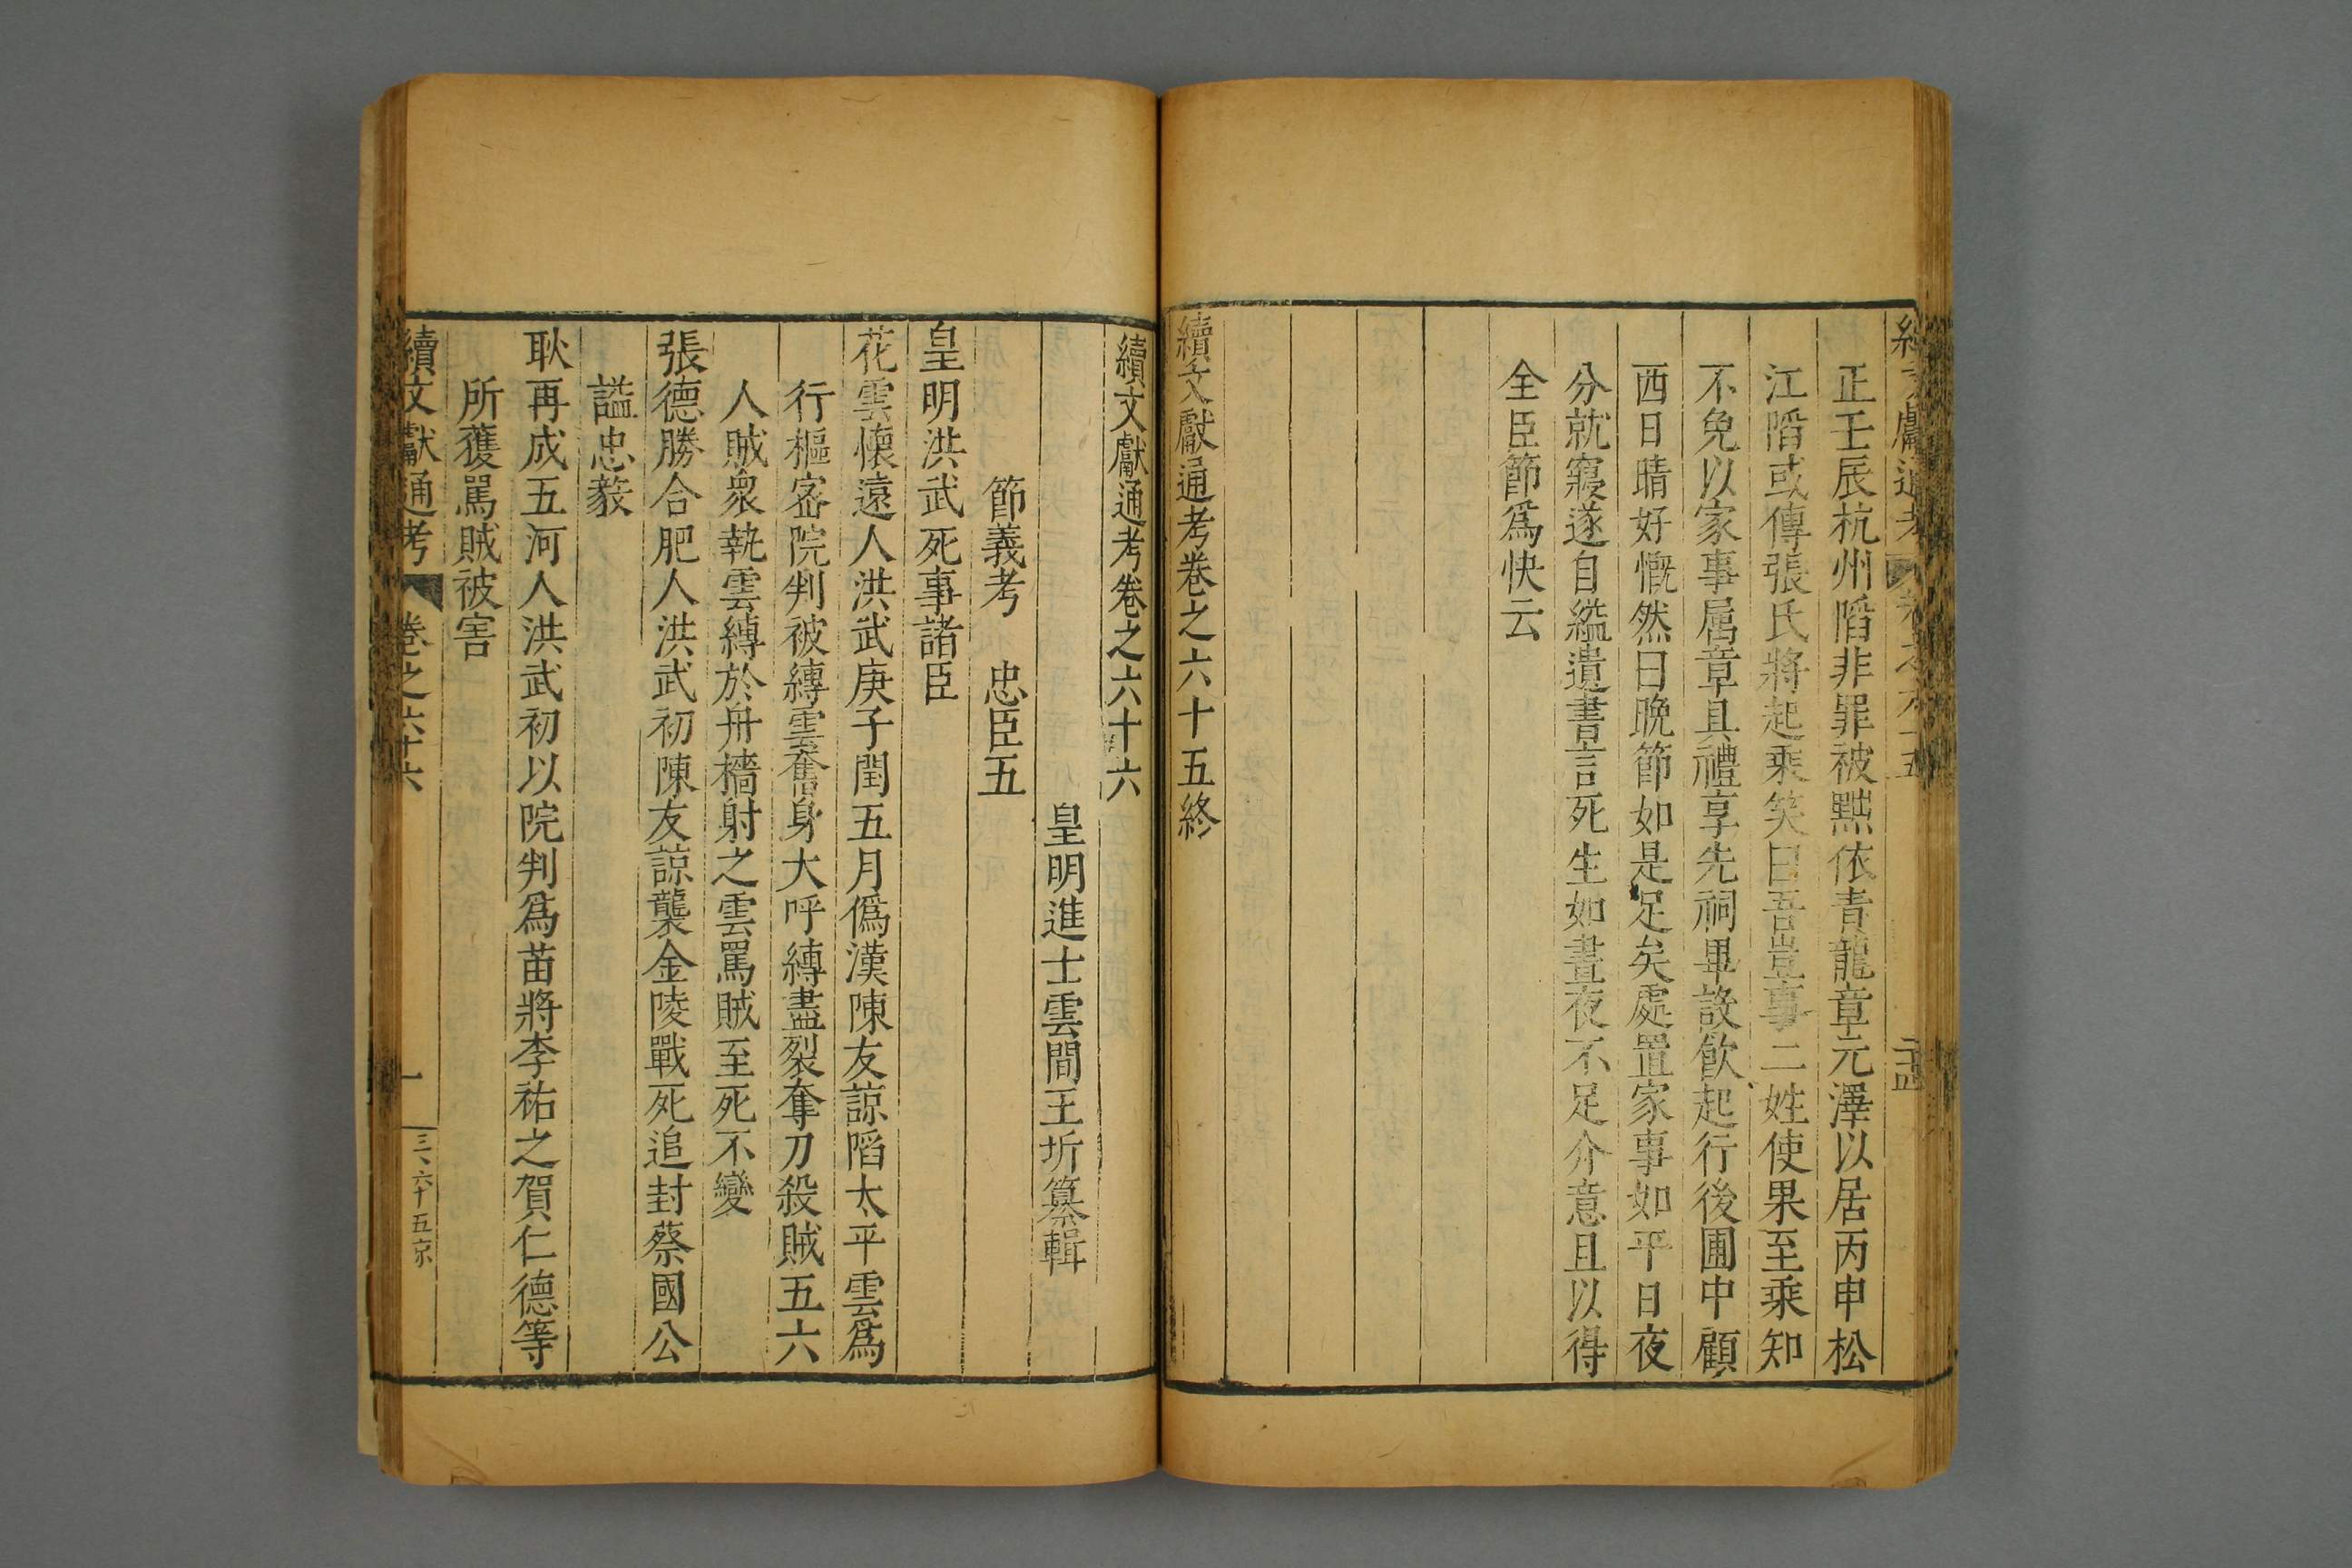 正壬辰杭州䧟非罪被黜依青龍章元澤以居丙申松
江䧟或傳張氏將起乘笑曰吾豈事二姓使果至乘知
不免以家事属章具禮享先祠畢設飲起行後圃中顧
西日晴好慨然曰晚節如是足矣處置家事如平日夜
分就寢遂自縊遺書言死生如晝夜不足介意且以得
全臣節爲快云
續文獻通考卷之六十五終
續文獻通考卷之六十六
皇明進士雲間王圻纂輯
節義考 忠臣五
皇明洪武死事諸臣
花雲懷遠人洪武庚子閏五月僞漢陳友諒䧟太平雲爲
行樞密院判被縳雲奮身大呼縳盡裂奪刀殺賊五六
人賊衆執雲縳於舟檣射之雲罵賊至死不變
張德勝合肥人洪武初陳友諒襲金陵戰死追封蔡國公
謚忠毅
耿再成五河人洪武初以院判爲苗將李祐之賀仁德等
所獲罵賊被害
續文獻通考 卷之六十六 一 三、六十五 京